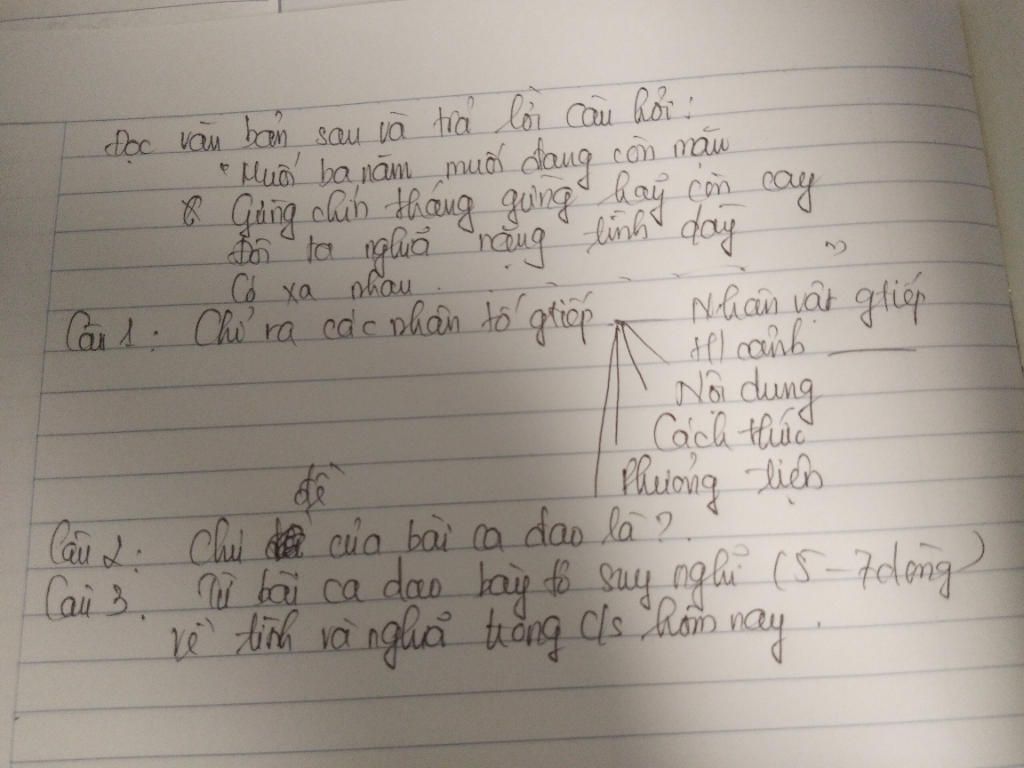 Đọc văn bản sau và trả lời câu hỏi:
"Muối ba năm muối đang còn mặn
Gừng chín tháng gừng hãy còn cay
Đôi ta nghĩa nặng tình dày
Có xa nhau . "
Câu 1: Chỉ ra các nhân tố gtiếp Nhân vật gtiếp
H cảnh ——
Nội dung
Cách thức
Phương tiện
đề
Câu 2: Chủ của bài ca dao là?
Câu 3. Từ bài ca dao bày tỏ suy nghĩ (5-7 dòng)
về tình và nghĩa trong c/s hôm nay.